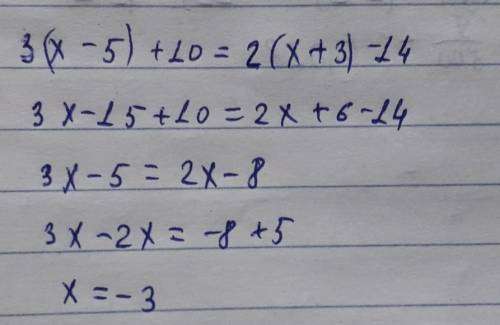 3(x-5)+10=2(x+3)-14
3x-15+10=2x+6-14
3x-5=2x-8
3x-2x=-8+5
x=-3